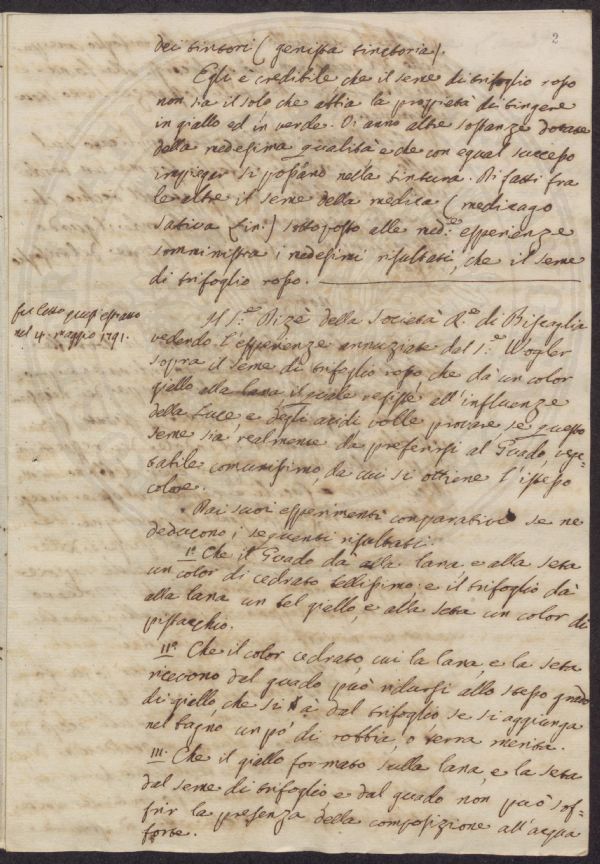 2
dei tintori (genista tinctoria).
Egli è credibile che il seme di trifoglio rosso
non sia il solo che abbia la proprietà di tingere
in giallo ed in verde. Vi anno altre sostanze dotate
della medesima qualità e che con egual successo
impiegar si possano nella tintura. Di fatti fra
le altre il seme della medica (medicago
sativa Lin:) sottoposto alle med:e esperienze
somministra i medesimi risultati, che il seme
di trifoglio rosso.
fu letto quest'estratto
nel 4. maggio 1791.
Il S.e Dizè della Società R.e di Biscaglia
vedendo l'esperienze annuziate dal S.e Wogler
sopra il seme di trifoglio rosso, che dà un color
giallo alla lana il quale resiste all'influenze
della Luce, e degli acidi volle provare, se questo
seme sia realmente da preferirsi al Guado, vege-
tabile comunissimo, da cui si ottiene l'istesso
colore.
Dai suoi esperimenti comparativi se ne
deducono i seguenti risultati:
I.o Che il Guado dà alla lana, e alla seta
un color di cedrato bellissimo; e il trifoglio dà
alla lana un bel giallo, e alla seta un color di
pistacchio.
II.o Che il color cedrato, cui la lana, e la seta
ricevono dal guado può ridursi allo stesso grado
di giallo, che si à dal trifoglio se si aggiunga
nel bagno un pò di robbia, o terra merita.
III. Che il giallo formato sulla lana, e la seta
dal seme di trifoglio e dal guado non può sof-
frir la presenza della composizione all'acqua
forte.